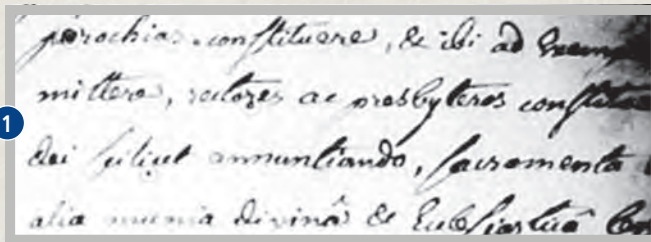 parochias constituere, & ibi ad
mittere, rectores ac presbyteros
dei scilicet annuntiando, sacramenta
alia munia divinâ & Ecclesiasticâ
1